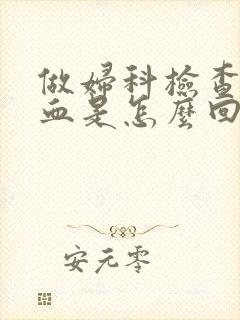 做婦科檢查
血是怎麼回
安元零